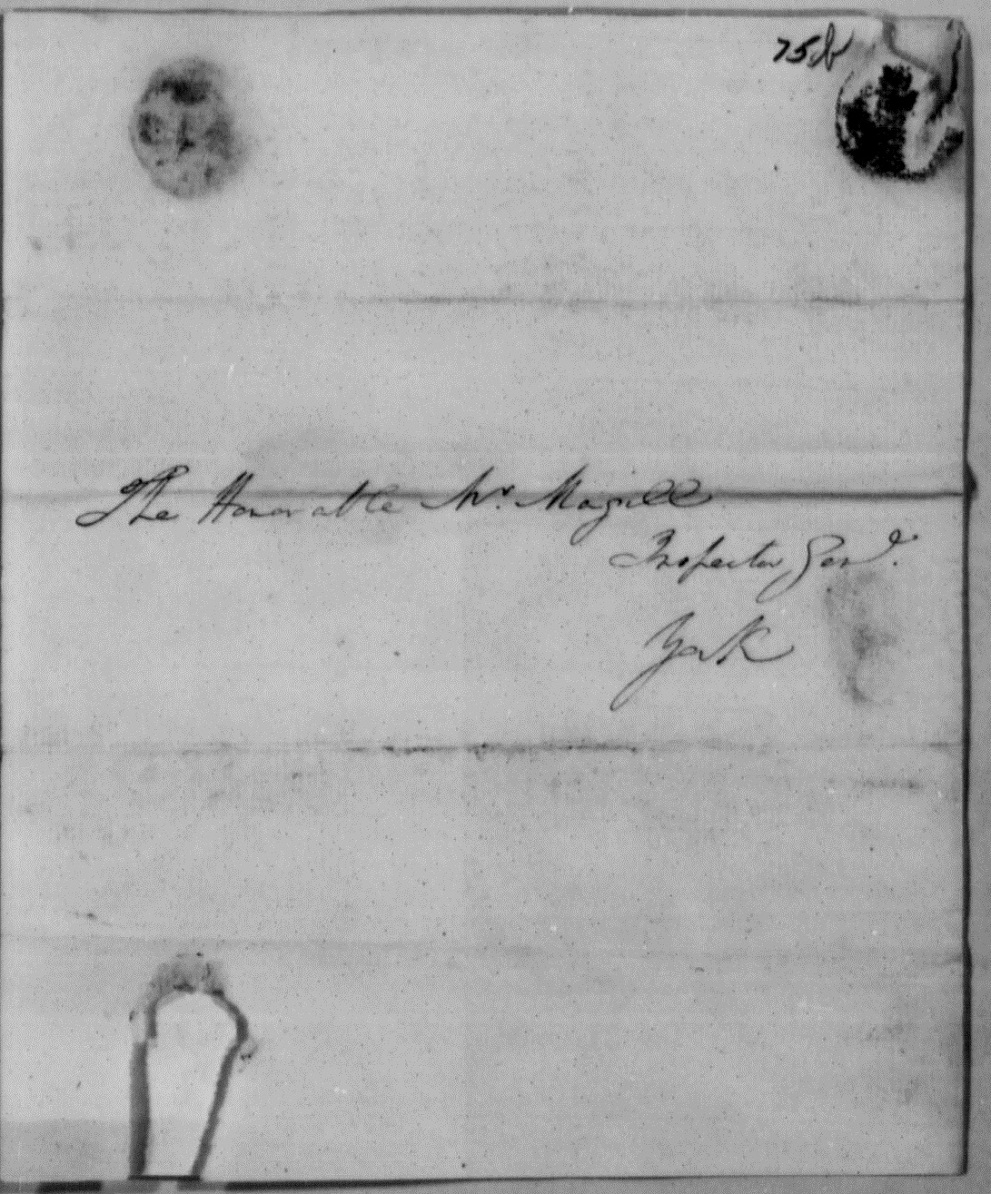 75b
The Honorable Mr. Magill
Inspector Genl.
York